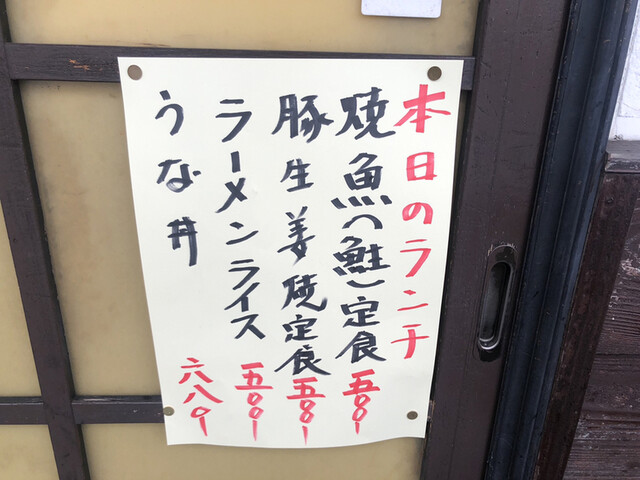 本日のランチ
焼魚(鮭)定食 五〇〇ー
豚生姜焼定食 五五〇ー
ラーメンライス 五五〇ー
うな丼 六八〇ー